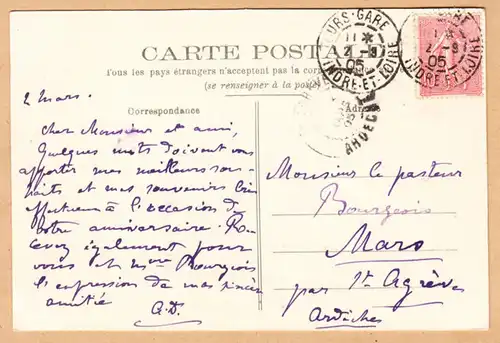 CARTE POSTALE
Tous les pays étrangers n'acceptent pas la
(se renseigner à la poste)
TOURS-GARE
11 *
2 -3
05
INDRE-ET-LOIRE
GARE
2 -3
05
INDRE-ET-LOIRE
ARDÈCHE
Correspondance
Adr
2 mars.
Cher Monsieur et ami,
Quelques mots doivent vous
apporter mes meilleurs sou-
haits et mes souvenirs bien
affectueux à l'occasion de
votre anniversaire. Re-
cevez également pour
vous et Mme Bourgeois
l'expression de mes sincères
amitiés
G.D.
Monsieur le pasteur
Bourgeois
Mars
par St Agrève
Ardèche